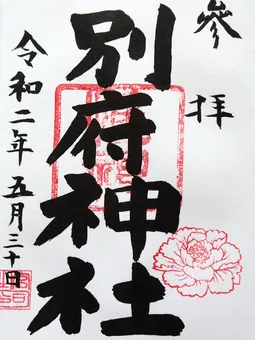 參拝
別府神社
令和二年五月三十日